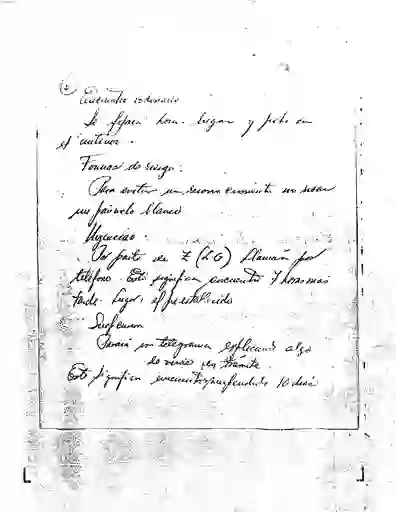 Encuentro ordinario
Se fijara hora lugar y fecha en
el anterior.
Formas de riesgo:
Para evitar un reconocimiento se usara
un pañuelo blanco
Urgencias:
Por parte de Z (LG) llamará por
teléfono. Esto significa encuentro 7 horas mas
tarde. Lugar: el preestablecido
Suspension
Pasará un telegrama explicando algo
en trámite.
Esto significa encuentro 10 dias